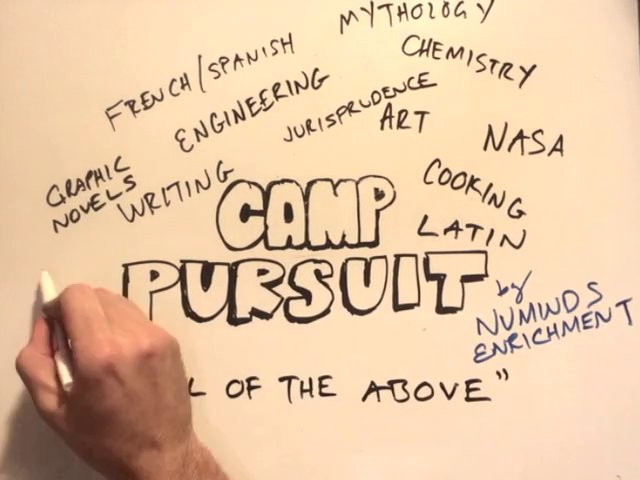 MYTHOLOGY
CHEMISTRY
FRENCH/SPANISH
ENGINEERING
JURISPRUDENCE
ART
NASA
GRAPHIC
NOVELS
WRITING
COOKING
LATIN
CAMP
PURSUIT
by
NUMINDS
ENRICHMENT
L OF THE ABOVE"